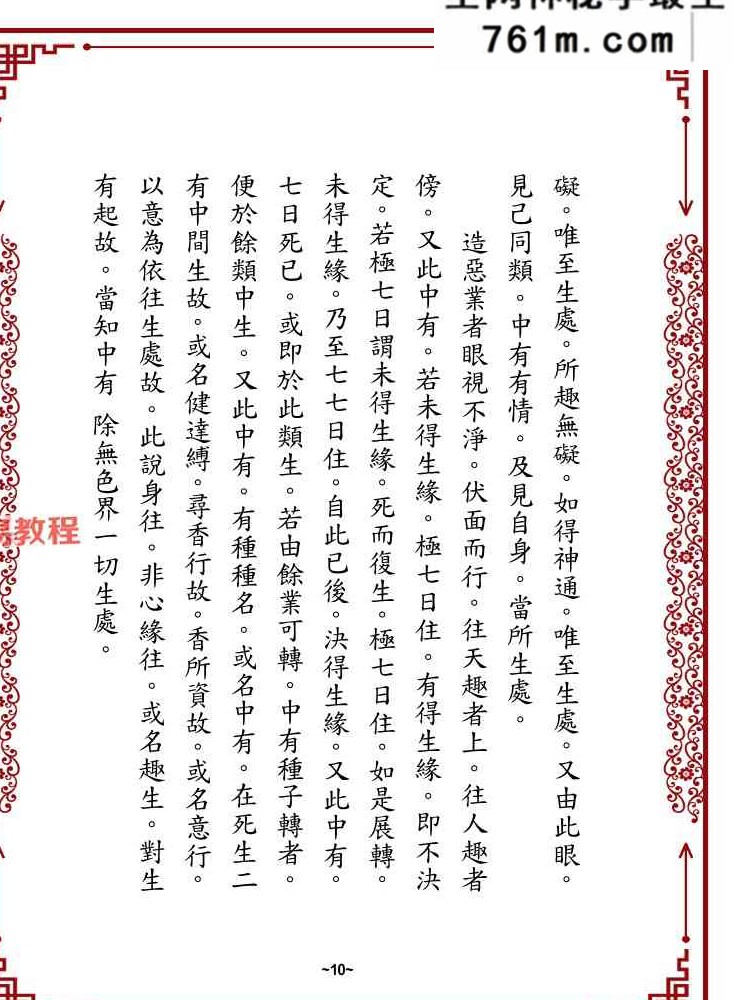 761m.com
礙。唯至生處。所趣無礙。如得神通。唯至生處。又由此眼。
見己同類。中有有情。及見自身。當所生處。
造惡業者眼視不淨。伏面而行。往天趣者上。往人趣者
傍。又此中有。若未得生緣。極七日住。有得生緣。即不決
定。若極七日謂未得生緣。死而復生。極七日住。如是展轉。
未得生緣。乃至七七日住。自此已後。決得生緣。又此中有。
七日死已。或即於此類生。若由餘業可轉。中有種子轉者。
便於餘類中生。又此中有。有種種名。或名中有。在死生二
有中間生故。或名健達縛。尋香行故。香所資故。或名意行。
以意為依往生處故。此說身往。非心緣往。或名趣生。對生
有起故。當知中有 除無色界一切生處。
教程
~10~